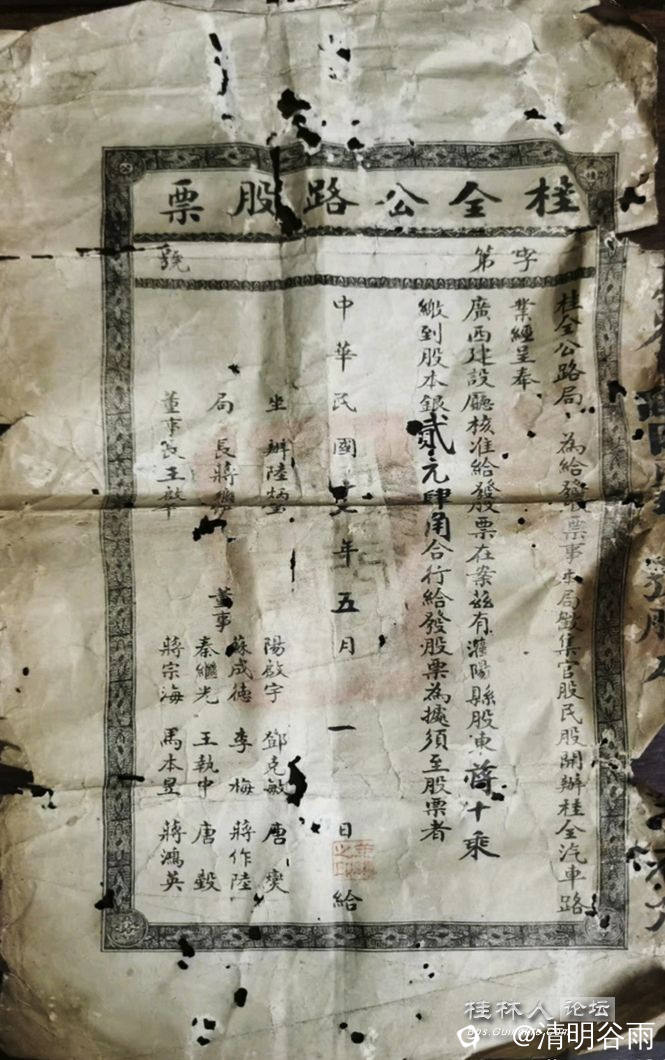 桂全公路股票
字第 號
桂全公路局為給發股票事本局官股民股開辦桂全汽車路
業經呈奉
廣西建設廳核准給發股票在案茲有灌陽縣股東蔣十乘
繳到股本銀貳元肆角合行給發股票為據須至股票者
中華民國 年五月一日給
坐辦陸炳
局長蔣
董事長王
董事
陽啟宇 鄧克敏 唐爕
蘇成德 李梅 蔣作陸
秦繼光 王執中 唐毅
蔣宗海 馬本昱 蔣鴻英
桂林人论坛
bbs.Guilinlife.com
@清明谷雨